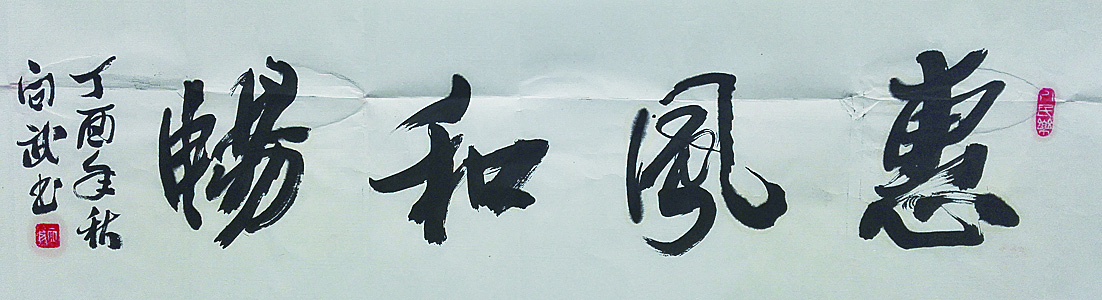 惠風和暢
丁酉年秋
向武书